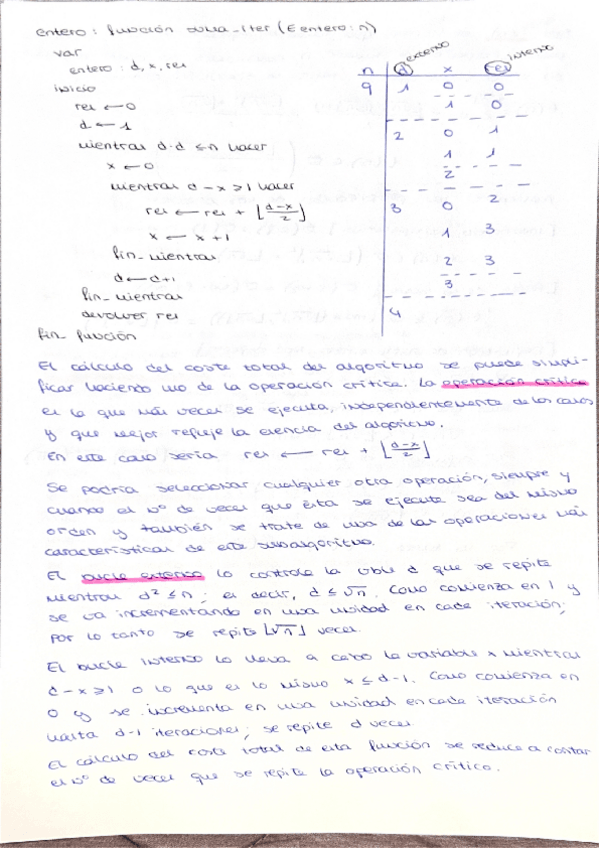 entero: función suma-iter (E entero: n)
var
entero: d, x, res
inicio
res ← 0
d ← 1
mientras d·d ≤ n hacer
x ← 0
mientras d-x ≥ 1 hacer
res ← res + ⌊(d-x)/2⌋
x ← x+1
fin_mientras
d ← d+1
fin_mientras
devolver res
fin_función
externo interno
n d x res
9 1 0 0
1 0
2 0 1
1 1
2
3 0 2
1 3
2 3
3
4
El cálculo del coste total del algoritmo se puede simpli-
ficar haciendo uso de la operación crítica. La operación crítica
es la que más veces se ejecuta, independientemente de los casos
y que mejor refleje la esencia del algoritmo.
En este caso sería res ← res + ⌊(d-x)/2⌋
Se podría seleccionar cualquier otra operación, siempre y
cuando el nº de veces que ésta se ejecute sea del mismo
orden y también se trate de una de las operaciones más
características de este subalgoritmo.
El bucle externo lo controla la vble d que se repite
mientras d² ≤ n; es decir, d ≤ √n. Como comienza en 1 y
se va incrementando en una unidad en cada iteración;
por lo tanto se repite ⌊√n⌋ veces.
El bucle interno lo lleva a cabo la variable x mientras
d-x ≥ 1 o lo que es lo mismo x ≤ d-1. Como comienza en
0 y se incrementa en una unidad en cada iteración
hasta d-1 iteraciones; se repite d veces.
El cálculo del coste total de esta función se reduce a contar
el nº de veces que se repite la operación crítico.